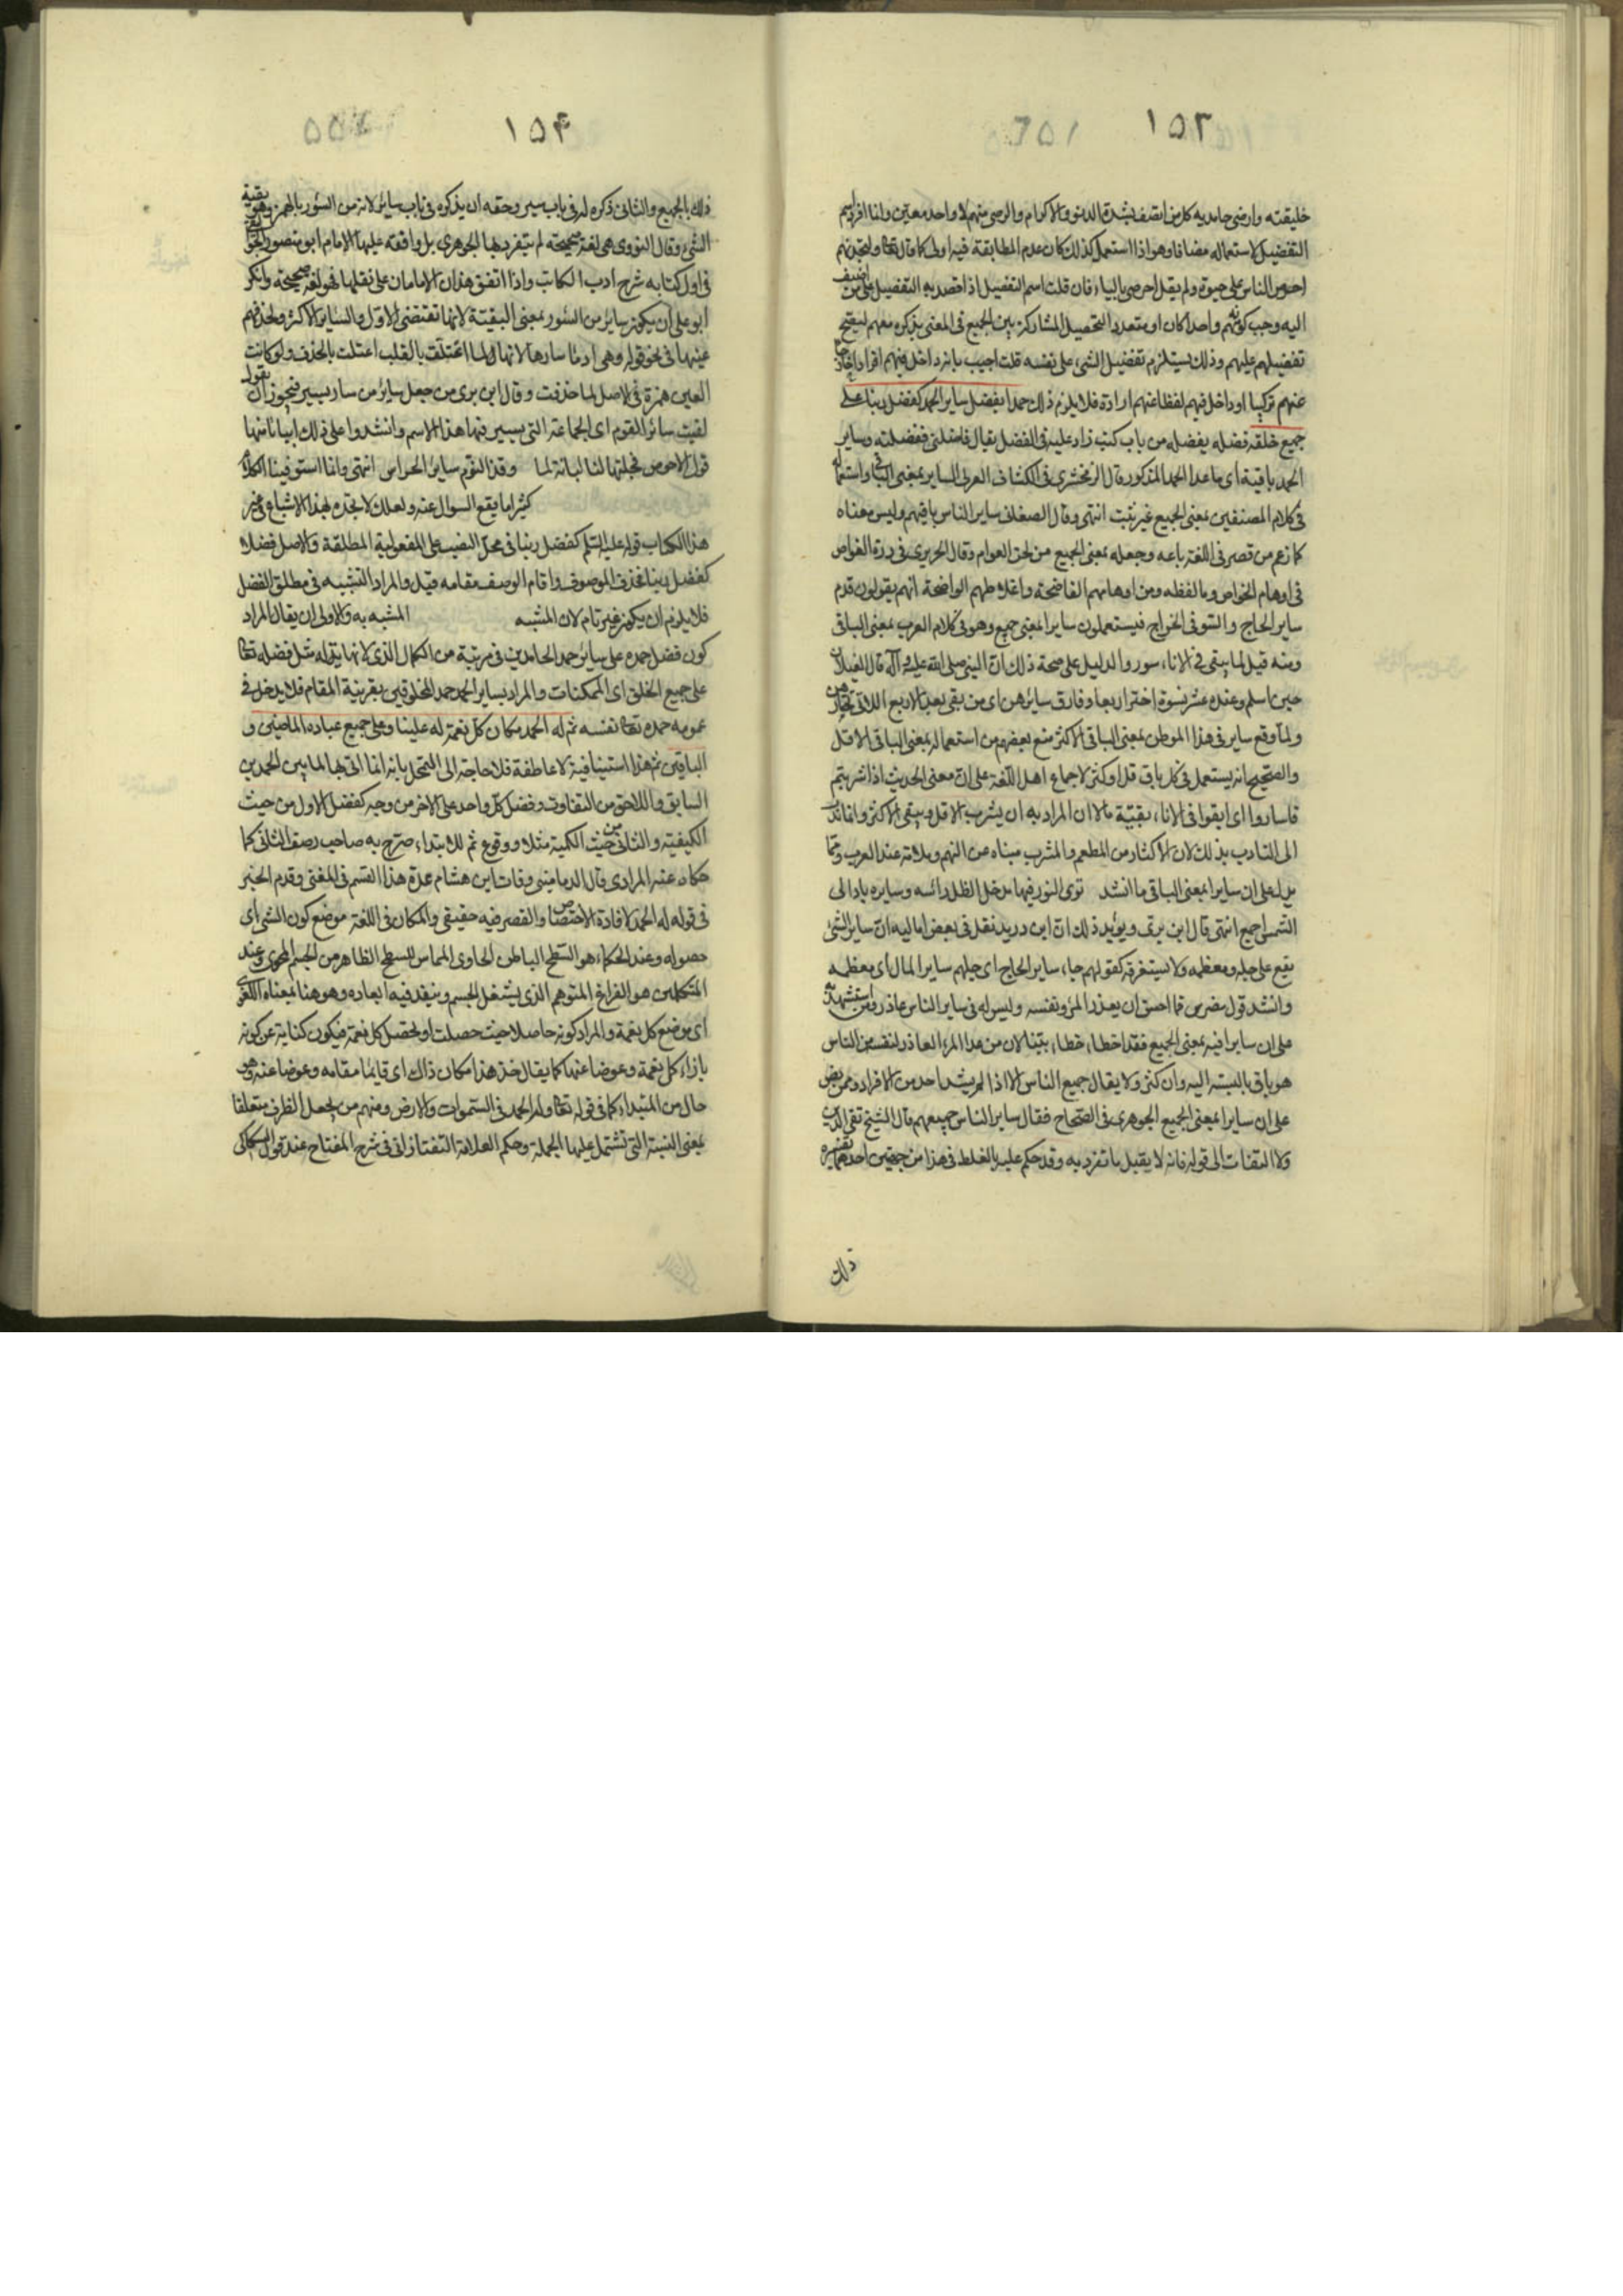 ١٥٣
خليقته وارضى حامديه كل من اتصف بشدة الدنو والاكرام والرضى منهم لا واحد معين وانما افرد اسم
التفضيل لاستعماله مضافا وهو اذا استعمل كذلك كان عدم المطابقة فيه اولى كما قال تعالى ولتجدنهم
احرص الناس على حيوة ولم يقل احرصى بالياء فان قلت اسم التفضيل اذا قصد به التفضيل على من اضيف
اليه وجب كونه منهم واحدا كان او متعددا لتحصيل المشاركة بين الجميع فى المعنى بذكره معهم ليتضح
تفضيلهم عليهم وذلك يستلزم تفضيل الشىء على نفسه قلت اجيب بانه داخل فيهم افرادا خارج
عنهم تركيبا او داخل فيهم لفظا عنهم ارادة فلا يلزم ذلك حمدا يفضل ساير الحمد كفضل ربنا على
جميع خلقه فضله يفضله من باب كتب زاد عليه فى الفضل يقال فاضلنى ففضلته وساير
الحمد باقية اى ما عدا الحمد المذكور قال الزمخشرى فى الكشاف العرب الساير بمعنى الباقى واستعماله
فى كلام المصنفين بمعنى الجميع غير ثبت انتهى وقال الصغانى ساير الناس باقيهم وليس معناه
كما زعم من قصر فى اللغة باعه وجعله بمعنى الجميع من لحن العوام وقال الحريرى فى درة الغواص
فى اوهام الخواص وما لفظه ومن اوهامهم الفاضحة واغلاطهم الواضحة انهم يقولون قدم
ساير الحاج واستوفى الخراج فيستعملون سايرا بمعنى جميع وهو فى كلام العرب بمعنى الباقى
ومنه قيل لما يبقى فى الاناء سور والدليل على صحة ذلك ان النبى صلى الله عليه وآله قال لغيلان
حين اسلم وعنده عشر نسوة اختر اربعا وفارق سايرهن اى من بقى بعد الاربع اللاتى تختارهن
ولما وقع ساير فى هذا الموطن بمعنى الباقى الاكثر منع بعضهم من استعماله بمعنى الباقى الاقل
والصحيح انه يستعمل فى كل باق قل او كثر لاجماع اهل اللغة على ان معنى الحديث اذا شربتم
فاسأروا اى ابقوا فى الاناء بقية ماء لا ان المراد به ان يشرب الاقل ويبقى الاكثر وانما ندب
الى التأدب بذلك لان الاكثار من المطعم والمشرب مبناه عن النهم وملامة عند العرب ومما
يدل على ان سايرا بمعنى الباقى ما انشد ترى الثور فيها مدخل الظل رأسه وسايره باد الى
الشمس اجمع انتهى قال ابن برى ويؤيد ذلك ان ابن دريد نقل فى بعض اماليه ان ساير الشىء
يقع على جله ومعظمه ولا يستغرقه كقولهم جاء ساير الحاج اى جلهم ساير المال اى معظمه
وانشد قول مضرس فما احسن ان يعذر المرء نفسه وليس له فى ساير الناس عاذر ومن استشهد به
على ان سايرا فيه بمعنى الجميع فقد اخطأ خطاء بينا لان من عدا المرء العاذر لنفسه من الناس
هو باق بالنسبة اليه وان كثر ولا يقال جميع الناس الا اذا لم يشذ احد من الافراد وممن نص
على ان سايرا بمعنى الجميع الجوهرى فى الصحاح فقال ساير الناس جميعهم قال الشيخ تقى الدين
ولا التفات الى قوله فانه لا يقبل ما تفرد به وقد حكم عليه بالغلط فى هذا من جهتين احدهما تفسيره
ذلك
١٥۴
ذلك بالجميع والثانى ذكره له فى باب سير وحقه ان يذكره فى باب سائر لانه من السؤر بالهمز وهو بقية
الشىء وقال النووى هى لغة صحيحة لم يتفرد بها الجوهرى بل وافقه عليها الامام ابو منصور الجواليقى
فى اول كتابه شرح ادب الكاتب واذا اتفق هذان الامامان على نقلها فهو لغة صحيحة وانكر
ابو على ان يكون سائر من السؤر بمعنى البقية لانها تقتضى الاقل والساير الاكثر ولحذفهم
عينها فى نحو قوله وهى ادماء سارها لانها لما اعتلت بالقلب اعتلت بالحذف ولو كانت
العين همزة فى الاصل لما حذفت وقال ابن برى من جعل سائر من سار يسير فيجوز ان يقول
لقيت سائر القوم اى الجماعة التى يسير فيها هذا الاسم وانشدوا على ذلك ابياتا منها
قول الاحوص فجلتها لنا لبانة لما وقذ النوم ساير الحراس انتهى وانما استوفينا الكلام
كثيرا ما يقع السوال عنه ولعلك لا تجده بهذا الاشباع فى غير
هذا الكتاب قوله عليه السلم كفضل ربنا فى محل النصب على المفعولية المطلقة والاصل فضلا
كفضل ربنا فحذف الموصوف واقام الوصف مقامه قيل والمراد التشبيه فى مطلق الفضل
فلا يلزم ان يكون غير تام لان المشبه المشبه به والاولى ان يقال المراد
كون فضل حمده على سائر حمد الحامدين فى مرتبة من الكمال الذى لا نهاية له مثل فضله تعالى
على جميع الخلق اى الممكنات والمراد بساير الحمد حمد المخلوقين بقرينة المقام فلا يدخل فى
عمومه حمده تعالى نفسه ثم له الحمد مكان كل نعمة له علينا وعلى جميع عباده الماضين و
الباقين ثم هذا استينافية لا عاطفة فلا حاجة الى التمحل بانه انما اتى بها لما بين الحمدين
السابق واللاحق من التفاوت وفضل كل واحد على الاخر من وجه كفضل الاول من حيث
الكيفية والثانى من حيث الكمية مثلا ووقوع ثم للابتداء صرح به صاحب رصف المبانى كما
حكاه عنه المرادى قال الدمامينى وفات ابن هشام عدة هذا القسم فى المغنى وقدم الخبر
فى قوله له الحمد لافادة الاختصاص والقصر فيه حقيقى والمكان فى اللغة موضع كون الشىء اى
حصوله وعند الحكماء هو السطح الباطن الحاوى المماس للسطح الظاهر من الجسم المحوى وعند
المتكلمين هو الفراغ المتوهم الذى يشغل الجسم وينفذ فيه ابعاده وهو هنا بمعناه اللغوى
اى موضع كل نعمة والمراد كونه حاصلا حيث حصلت او لحصيل كل نعمة فيكون كناية عن كونه
بازاء كل نعمة وعوضا عنها كما يقال خذ هذا مكان ذاك اى قايما مقامه وعوضا عنه وهو
حال من المبتداء كما فى قوله تعالى وله الحمد فى السموات والارض ومنهم من يجعل الظرف متعلقا
بمعنى النسبة التى تشتمل عليها الجملة وحكم العلامة التفتازانى فى شرح المفتاح عند قول السكاكى